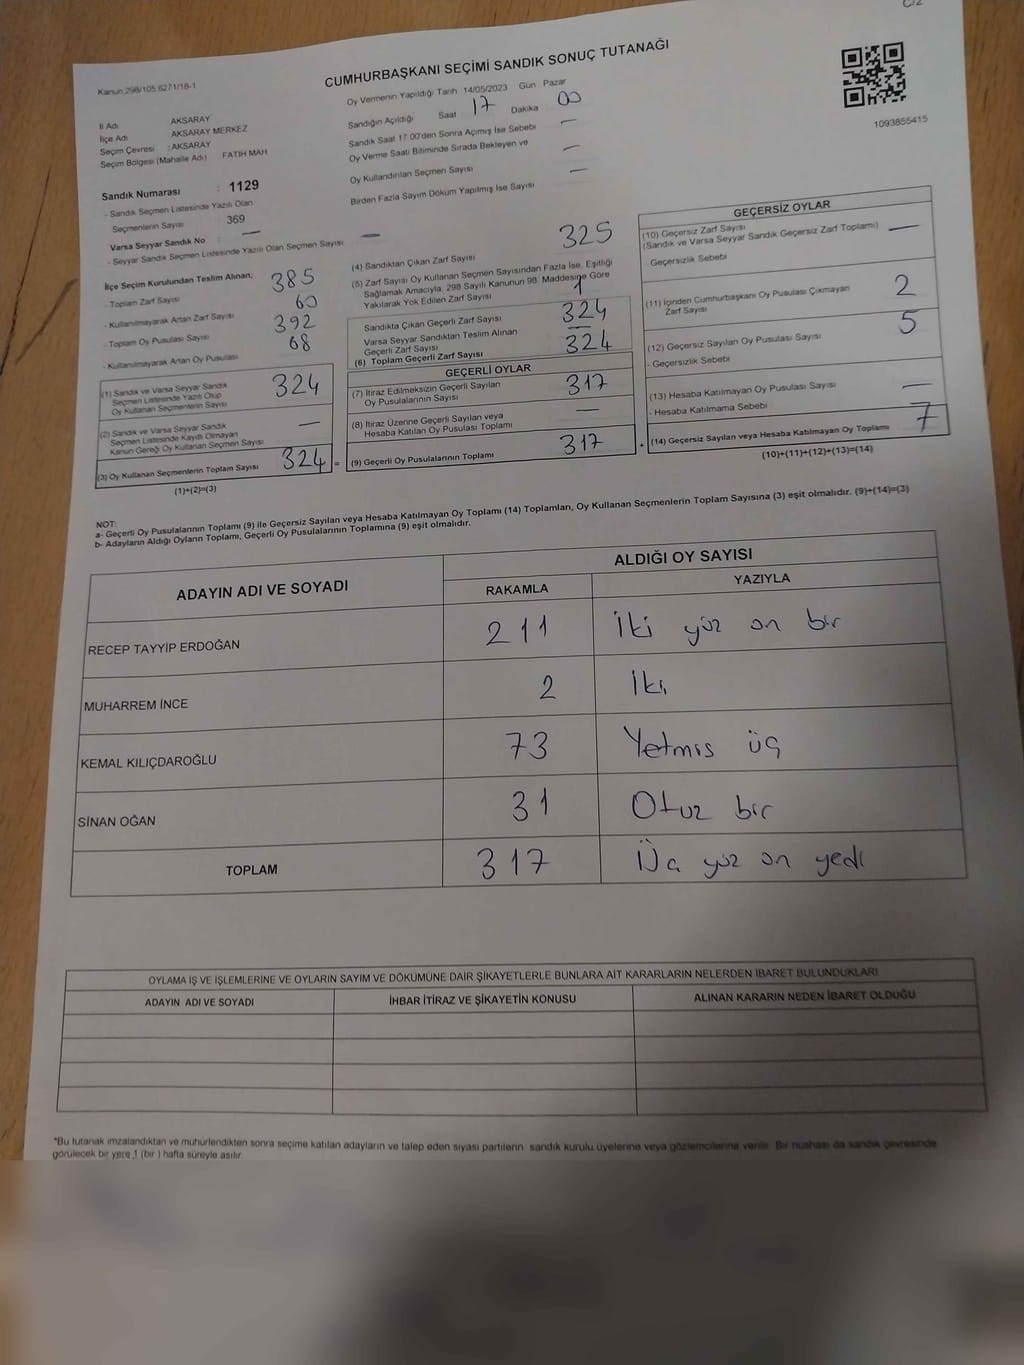 C/2
Kanun:298/105.6271/18-1
CUMHURBAŞKANI SEÇİMİ SANDIK SONUÇ TUTANAĞI
1093855415
İl Adı AKSARAY
İlçe Adı AKSARAY MERKEZ
Seçim Çevresi :AKSARAY
Seçim Bölgesi (Mahalle Adı) FATİH MAH
Sandık Numarası : 1129
- Sandık Seçmen Listesinde Yazılı Olan
Seçmenlerin Sayısı 369
Varsa Seyyar Sandık No : —
- Seyyar Sandık Seçmen Listesinde Yazılı Olan Seçmen Sayısı —
Oy Vermenin Yapıldığı Tarih 14/05/2023 Gün Pazar
Sandığın Açıldığı Saat 17 Dakika 00
Sandık Saat 17:00'den Sonra Açımış İse Sebebi —
Oy Verme Saati Bitiminde Sırada Bekleyen ve
Oy Kullandırılan Seçmen Sayısı —
Birden Fazla Sayım Döküm Yapılmış İse Sayısı —
İlçe Seçim Kurulundan Teslim Alınan;
- Toplam Zarf Sayısı 385
- Kullanılmayarak Artan Zarf Sayısı 60
- Toplam Oy Pusulası Sayısı 392
- Kullanılmayarak Artan Oy Pusulası 68
(1) Sandık ve Varsa Seyyar Sandık
Seçmen Listesinde Yazılı Olup
Oy Kullanan Seçmenlerin Sayısı 324
(2) Sandık ve Varsa Seyyar Sandık
Seçmen Listesinde Kayıtlı Olmayan
Kanun Gereği Oy Kullanan Seçmen Sayısı —
(3) Oy Kullanan Seçmenlerin Toplam Sayısı 324 =
(1)+(2)=(3)
(4) Sandıktan Çıkan Zarf Sayısı 325
(5) Zarf Sayısı Oy Kullanan Seçmen Sayısından Fazla İse, Eşitliği
Sağlamak Amacıyla, 298 Sayılı Kanunun 98. Maddesine Göre
Yakılarak Yok Edilen Zarf Sayısı 1
Sandıkta Çıkan Geçerli Zarf Sayısı 324
Varsa Seyyar Sandıktan Teslim Alınan
Geçerli Zarf Sayısı —
(6) Toplam Geçerli Zarf Sayısı 324
GEÇERLİ OYLAR
(7) İtiraz Edilmeksizin Geçerli Sayılan
Oy Pusulalarının Sayısı 317
(8) İtiraz Üzerine Geçerli Sayılan veya
Hesaba Katılan Oy Pusulası Toplamı —
(9) Geçerli Oy Pusulalarının Toplamı 317 +
GEÇERSİZ OYLAR
(10) Geçersiz Zarf Sayısı
(Sandık ve Varsa Seyyar Sandık Geçersiz Zarf Toplamı) —
- Geçersizlik Sebebi
(11) İçinden Cumhurbaşkanı Oy Pusulası Çıkmayan
Zarf Sayısı 2
(12) Geçersiz Sayılan Oy Pusulası Sayısı 5
- Geçersizlik Sebebi
(13) Hesaba Katılmayan Oy Pusulası Sayısı —
- Hesaba Katılmama Sebebi
(14) Geçersiz Sayılan veya Hesaba Katılmayan Oy Toplamı 7
(10)+(11)+(12)+(13)=(14)
NOT:
a- Geçerli Oy Pusulalarının Toplamı (9) ile Geçersiz Sayılan veya Hesaba Katılmayan Oy Toplamı (14) Toplamları, Oy Kullanan Seçmenlerin Toplam Sayısına (3) eşit olmalıdır. (9)+(14)=(3)
b- Adayların Aldığı Oyların Toplamı, Geçerli Oy Pusulalarının Toplamına (9) eşit olmalıdır.
ADAYIN ADI VE SOYADI ALDIĞI OY SAYISI
RAKAMLA YAZIYLA
RECEP TAYYİP ERDOĞAN 211 İki yüz on bir
MUHARREM İNCE 2 İki
KEMAL KILIÇDAROĞLU 73 Yetmis üç
SİNAN OĞAN 31 Otuz bir
TOPLAM 317 Üç yüz on yedi
OYLAMA İŞ VE İŞLEMLERİNE VE OYLARIN SAYIM VE DÖKÜMÜNE DAİR ŞİKAYETLERLE BUNLARA AİT KARARLARIN NELERDEN İBARET BULUNDUKLARI
ADAYIN ADI VE SOYADI İHBAR İTİRAZ VE ŞİKAYETİN KONUSU ALINAN KARARIN NEDEN İBARET OLDUĞU
*Bu tutanak imzalandıktan ve mühürlendikten sonra seçime katılan adayların ve talep eden siyasi partilerin sandık kurulu üyelerine veya gözlemcilerine verilir. Bir nüshası da sandık çevresinde
görülecek bir yere 1 (bir ) hafta süreyle asılır.